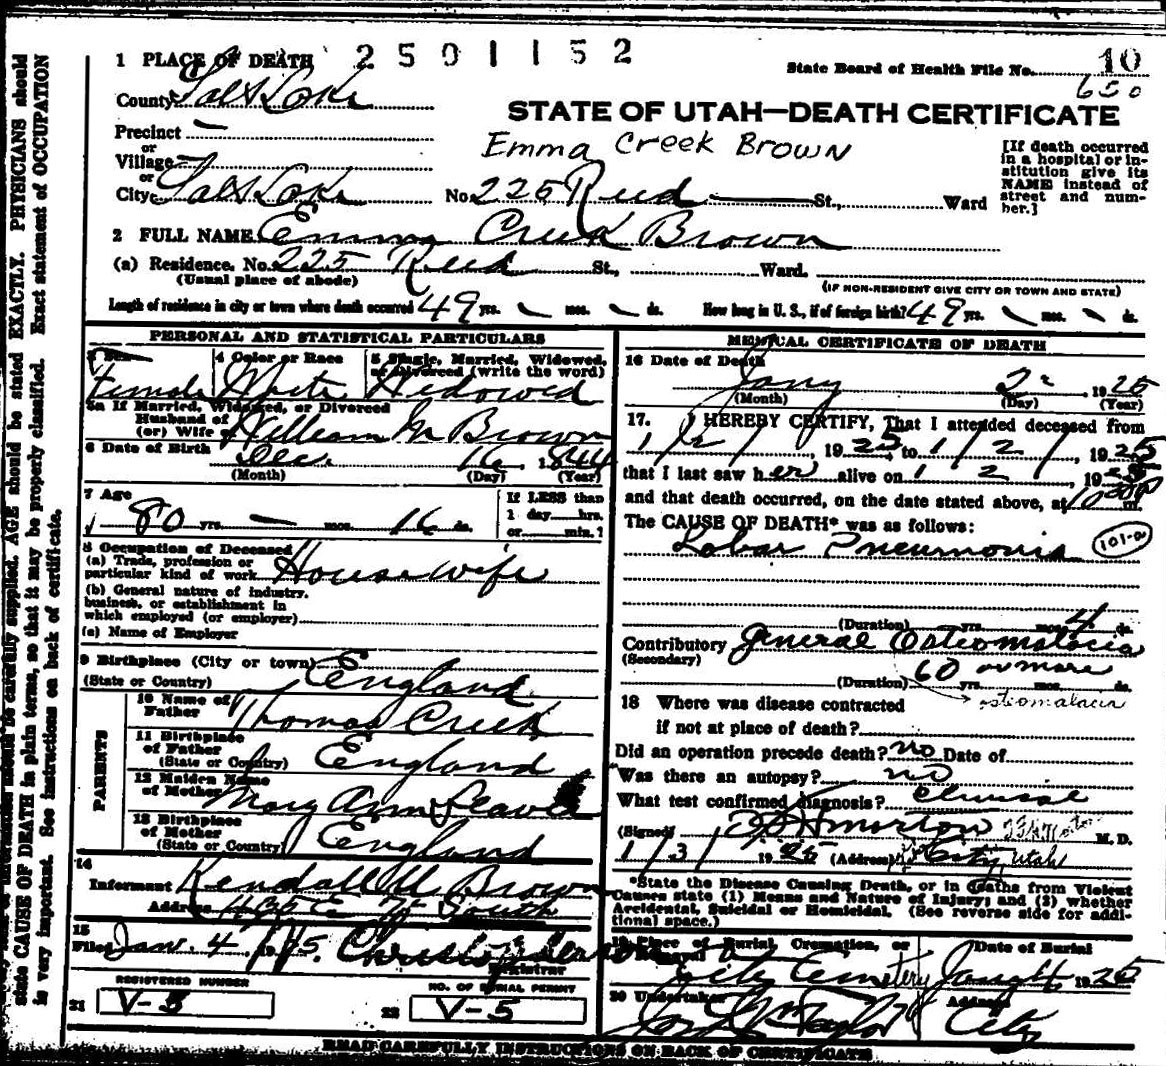 1 PLACE OF DEATH 2501152
State Board of Health File No. 10
650
County Salt Lake
STATE OF UTAH—DEATH CERTIFICATE
Precinct —
or
Village
or
City Salt Lake
Emma Creek Brown
No. 225 Reed St., Ward
[If death occurred
in a hospital or in-
stitution give its
NAME instead of
street and num-
ber.]
2 FULL NAME Emma Creek Brown
(a) Residence. No. 225 Reed St., Ward.
(Usual place of abode)
(IF NON-RESIDENT GIVE CITY OR TOWN AND STATE)
Length of residence in city or town where death occurred 49 yrs. — mos. — ds. How long in U. S., if of foreign birth? 49 yrs. — mos. — ds.
PERSONAL AND STATISTICAL PARTICULARS
3 Sex
Female
4 Color or Race
White
5 Single, Married, Widowed,
or Divorced (write the word)
Widowed
5a If Married, Widowed, or Divorced
Husband of
(or) Wife of William G. Brown
6 Date of Birth Dec. 16 1844
(Month) (Day) (Year)
7 Age
80 yrs. — mos. 16 ds.
If LESS than
1 day hrs.
or min.?
8 Occupation of Deceased
(a) Trade, profession or
particular kind of work Housewife
(b) General nature of industry,
business, or establishment in
which employed (or employer)
(c) Name of Employer
9 Birthplace (City or town)
(State or Country) England
PARENTS
10 Name of
Father Thomas Creek
11 Birthplace
of Father
(State or Country) England
12 Maiden Name
of Mother Mary Ann
13 Birthplace
of Mother
(State or Country) England
14
Informant Kendall W Brown
Address 435 E South
15
Filed Jan. 4, 1925.
Registrar
REGISTERED NUMBER
21 V-5
NO. OF BURIAL PERMIT
22 V-5
MEDICAL CERTIFICATE OF DEATH
16 Date of Death
Jany 2 1925
(Month) (Day) (Year)
17. I HEREBY CERTIFY, That I attended deceased from
, 1925, to 1/2/, 1925
that I last saw her alive on 1/2, 1925
and that death occurred, on the date stated above, at 10 m.
The CAUSE OF DEATH* was as follows:
Lobar Pneumonia 101-a
(Duration) yrs. mos. 4 ds.
Contributory General Osteomalacia
(Secondary)
60 or more
(Duration) yrs. mos. ds.
osteomalacia
18 Where was disease contracted
if not at place of death?
Did an operation precede death? no Date of
Was there an autopsy? no
What test confirmed diagnosis? Clinical
(Signed) M. D.
1/3/1925 (Address) City Utah
*State the Disease Causing Death, or in deaths from Violent
Causes state (1) Means and Nature of Injury; and (2) whether
Accidental, Suicidal or Homicidal. (See reverse side for addi-
tional space.)
19 Place of Burial, Cremation, or
Removal
City Cemetery
Date of Burial
1925
20 Undertaker
Address
City
READ CAREFULLY INSTRUCTIONS ON BACK OF CERTIFICATE
should be carefully supplied. AGE should be stated EXACTLY. PHYSICIANS should
state CAUSE OF DEATH in plain terms, so that it may be properly classified. Exact statement of OCCUPATION
is very important. See instructions on back of certificate.